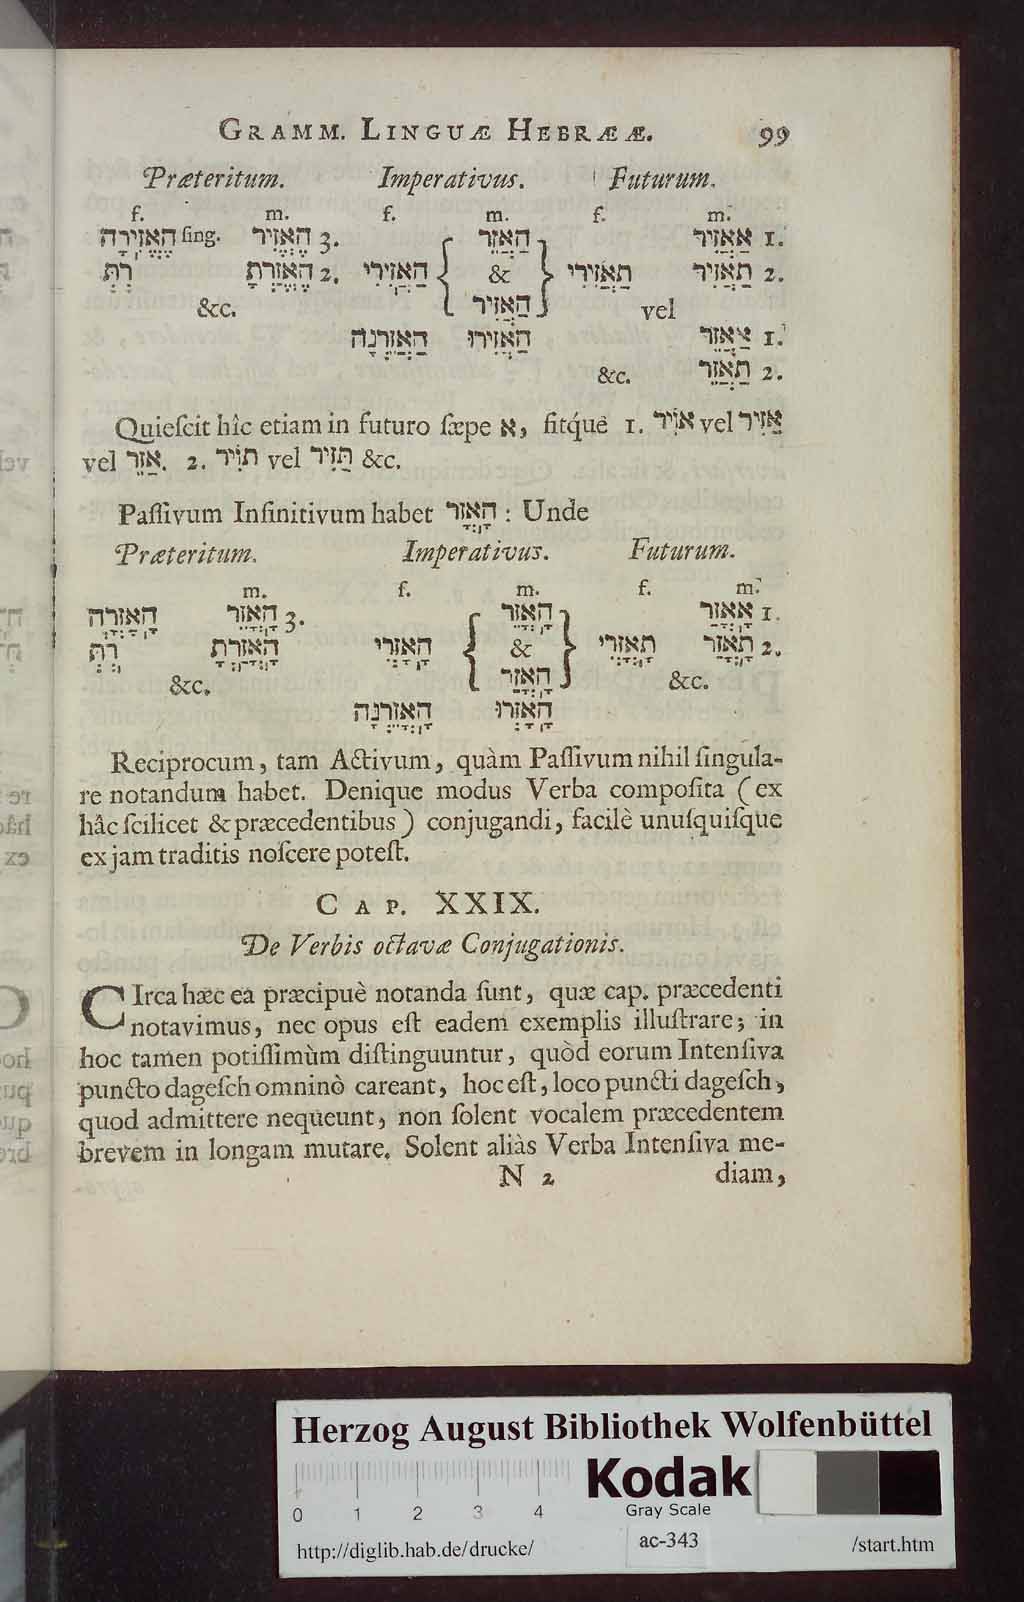 GRAMM. LINGUÆ HEBRÆÆ. 99
Præteritum. Imperativus. Futurum.
f. m. f. m. f. m.
הֶאֱזִירָה sing. הֶאֱזִיר 3. הַאֲזֵר אַאֲזִיר 1.
רְתְּ הֶאֱזַרְתָּ 2. הַאֲזִירִי & תַאֲזִירִי תַאֲזִיר 2.
&c. הַאֲזִיר vel
הַאֲזֵרְנָה הַאֲזִירוּ 1.
&c. תַאֲזֵר 2.
Quieſcit hîc etiam in futuro ſæpe א, ſitque 1. אוֹזִיר vel אַזִיר
vel אַזֵר. 2. vel תַּזִיר &c.
Paſſivum Infinitivum habet הָאֳזֵר : Unde
Præteritum. Imperativus. Futurum.
m. f. m. f. m.
הָאָזְרָה הָאֳזַר 3. הָאֳזֵר אָאֳזַר 1.
רְתְּ הָאֳזַרְתָּ הָאָזְרִי & תָאָזְרִי תָאֳזַר 2.
&c. הָאֳזַר &c.
הָאֳזֵרְנָה הָאָזְרוּ
Reciprocum, tam Activum, quàm Paſſivum nihil ſingula-
re notandum habet. Denique modus Verba compoſita (ex
hâc ſcilicet & præcedentibus) conjugandi, facilè unuſquiſque
ex jam traditis noſcere poteſt.
CAP. XXIX.
De Verbis octavæ Conjugationis.
CIrca hæc ea præcipuè notanda ſunt, quæ cap. præcedenti
notavimus, nec opus eſt eadem exemplis illuſtrare; in
hoc tamen potiſſimùm diſtinguuntur, quòd eorum Intenſiva
puncto dageſch omninò careant, hoc eſt, loco puncti dageſch,
quod admittere nequeunt, non ſolent vocalem præcedentem
brevem in longam mutare. Solent aliàs Verba Intenſiva me-
N 2 diam,
Herzog August Bibliothek Wolfenbüttel
Kodak
Gray Scale
0 1 2 3 4
http://diglib.hab.de/drucke/ ac-343 /start.htm